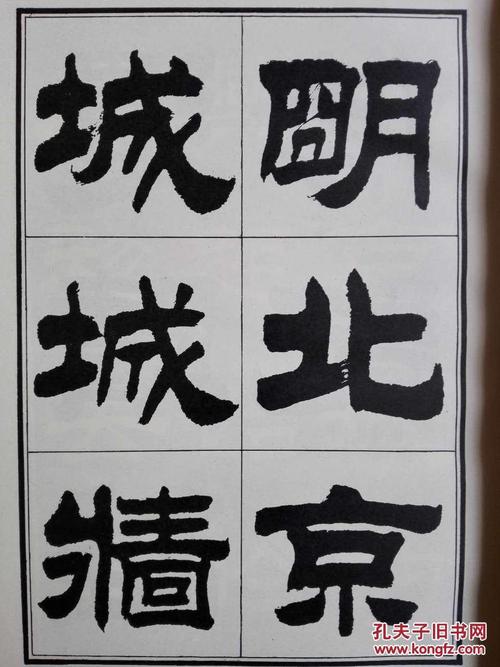 明北京
城城牆
孔夫子旧书网
www.kongfz.com